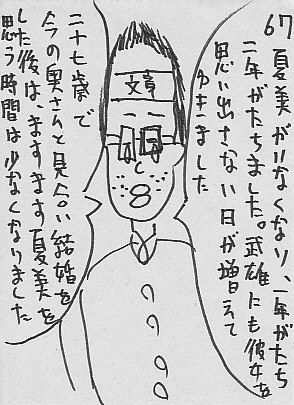 67 夏美がいなくなり、一年がたち
二年がたちました。武雄にも彼女を
思い出さない日が増えて
ゆきました
文竟
二十七歳で
今の奥さんと見合い結婚を
した後は、ますます夏美を
思う時間は少なくなりました